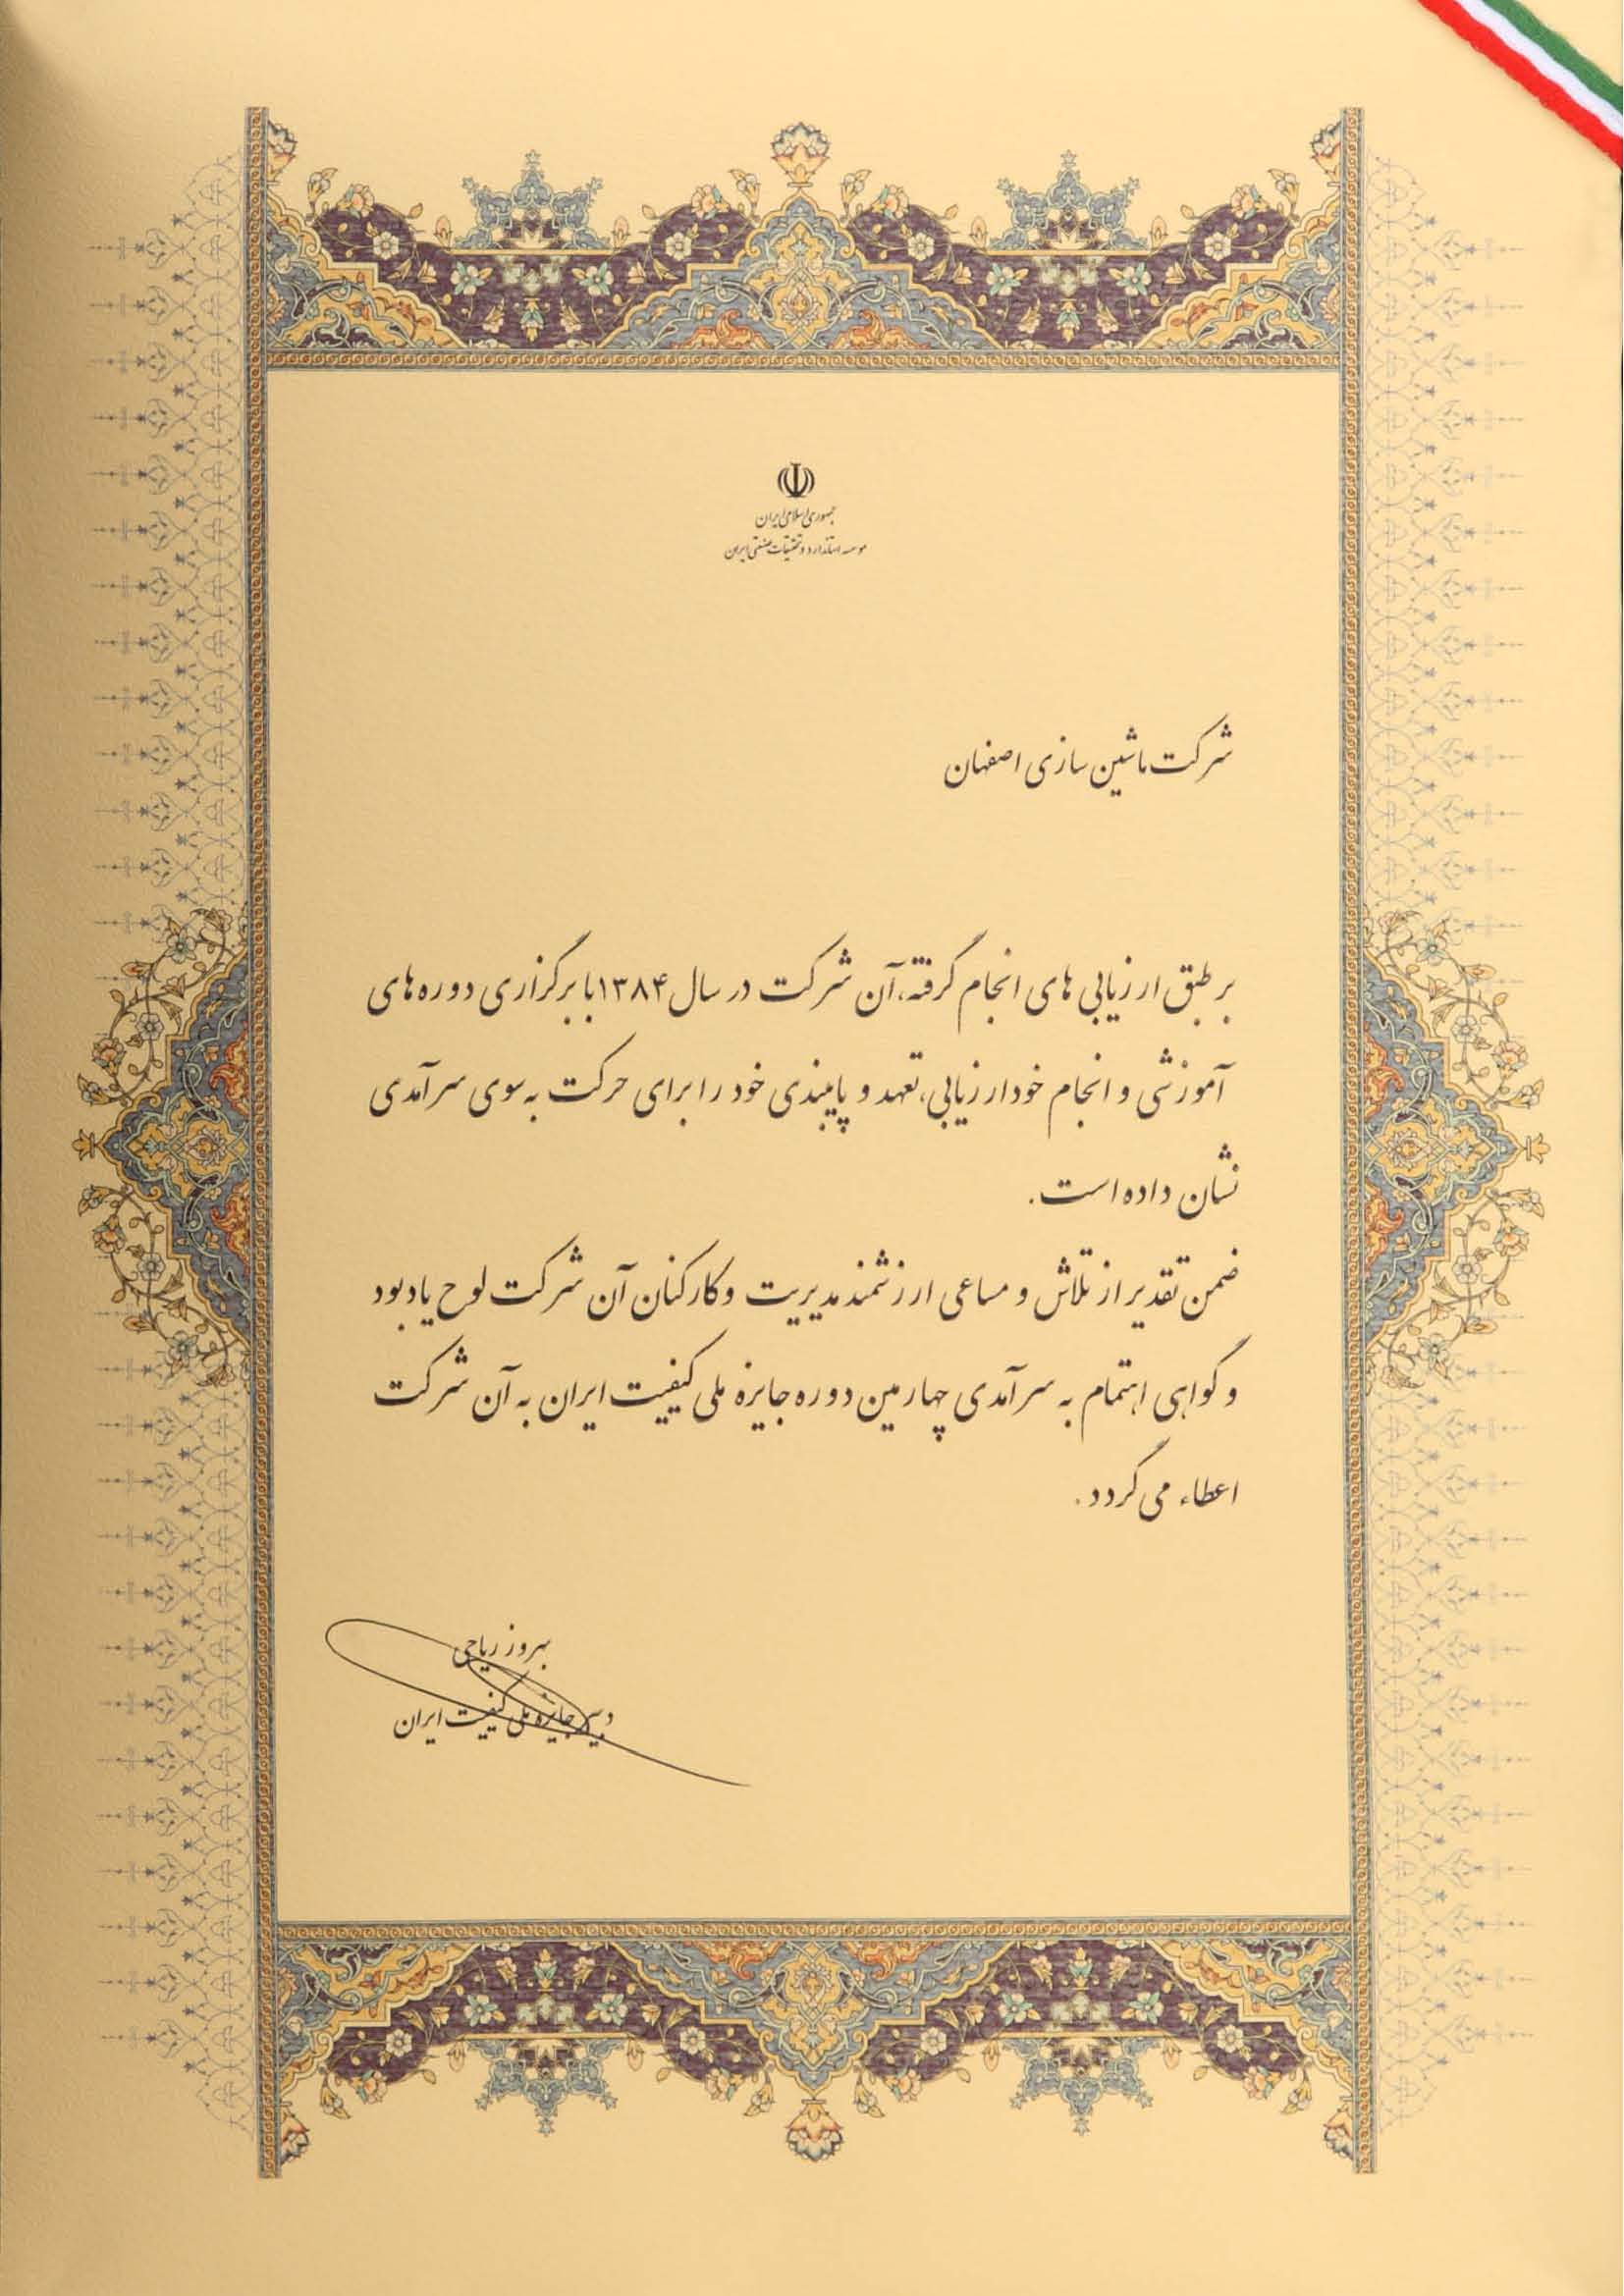 جمهوری اسلامی ایران
موسسه استاندارد و تحقیقات صنعتی ایران
شرکت ماشین سازی اصفهان
بر طبق ارزیابی های انجام گرفته، آن شرکت در سال ۱۳۸۴ با برگزاری دوره های
آموزشی و انجام خودارزیابی، تعهد و پایبندی خود را برای حرکت به سوی سرآمدی
نشان داده است.
ضمن تقدیر از تلاش و مساعی ارزشمند مدیریت و کارکنان آن شرکت لوح یادبود
و گواهی اهتمام به سرآمدی چهارمین دوره جایزه ملی کیفیت ایران به آن شرکت
اعطاء می گردد.
بهروز ریاحی
دبیر جایزه ملی کیفیت ایران